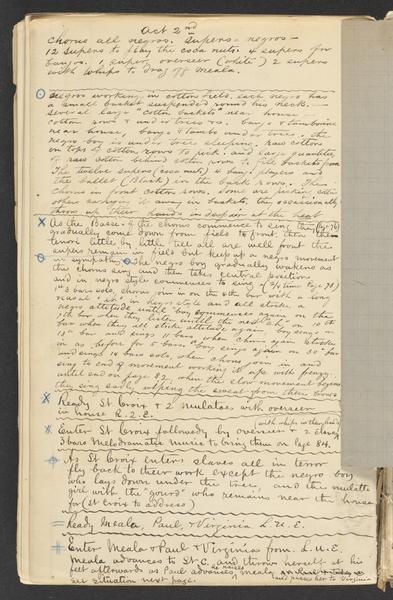 Act 2nd
chorus all negros. Supers - negros -
12 supers to play the coca nuts. 4 supers for
banjos. 1 super, overseer (white) 2 supers
with whips to drag off Meala.
negros working in cotton field, each negro has
a small basket suspended round his neck. -
Several large cotton baskets near house -
cotton rows & under trees &a. banjo & tamborine
near house, banjo & tambo under tree, the
negro boy is under tree sleeping, raw cotton
on tops of cotton rows to pick and large quantities
of raw cotton behind cotton rows to fill baskets from
The twelve supers (coca nuts) 4 banj. players and
the ballet (black) in the back rows. Then
chorus in front cotton rows. Some are picking cotton
others carrying it away in baskets, they occasionally
throw up their hands in despair at the heat
As the Bassi of the chorus commence to sing they (Page 76)
gradually come down from field to front, then the
tenors little by little till all are well front the
supers remain in field but keep up a negro movement
in sympathy. The negro boy gradually wakens as
the chorus sing and then takes central position
and in negro style commences to sing (2/4 time Page 78)
1st 3 bars solo, chorus join in on the 4th bar with a long
nasal "ah" in negro style and all strike a
negro attitude until boy commences again on the
7th bar when they listen until the next "ah" on 10th
bar when they all strike attitude again - boy sings on
13th bar and sings 11 bars, when chorus again strike
in as before for 5 bars - boy sings again on 30th bar
and sings 14 bars solo, when chorus join in and
sing to end of movement working it up with frenzy
until end on page 82, when the slow movement begins
they sing sadly wiping the sweat from their brows
Ready St Croix & 2 Mulatas with overseer
in house R. 2. E.
(with whips in their hands)
Enter St Croix followed by overseer & 2 slaves
3 bars Melodramatic music to bring them on Page 84.
As St Croix enters slaves all in terror
fly back to their work except the negro boy
who lays down under the tree, and the mulatto
girl with the gourd who remains near the house
for (St Croix to address)
Ready Meala, Paul, & Virginia L. U. E.
Enter Meala & Paul & Virginia from L. U. E.
Meala advances to St C. and throws herself at his
feet afterwards as Paul advances, Meala
and passes her to Virginia
see situation next page.